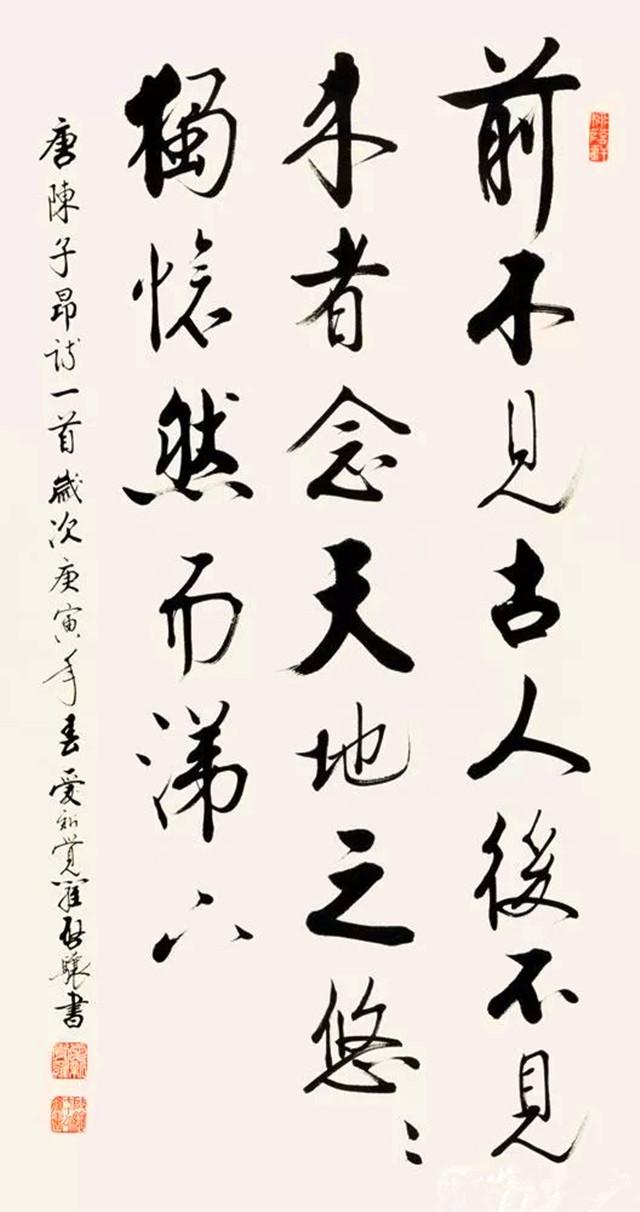 前不見古人後不見
来者念天地之悠〻
獨愴然而涕下
唐陳子昂诗一首歲次庚寅年春愛新覺羅啟驤書